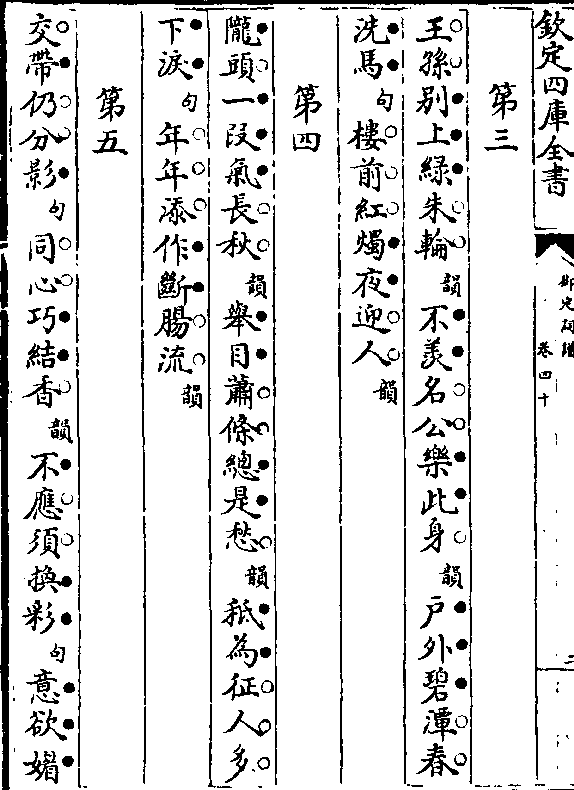 欽定四庫全書
御定詞譜
卷四十
第三
王孫別上綠朱輪韻不羨名公樂此身韻户外碧潭春
洗馬句樓前紅燭夜迎人韻
第四
隴頭一段氣長秋韻舉目蕭條總是愁韻秖為征人多
下淚句年年添作斷腸流韻
第五
交帶仍分影句同心巧結香韻不應須換彩句意欲媚